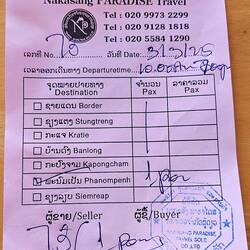 Nakasang PARADISE Travel
Tel : 020 9973 2299
Tel : 020 9128 1818
Tel : 020 5584 1290
ເລກທີ No. ວັນທີ Date: 3/3/25
ເວລາອອກເດີນທາງ Departuretime 10.00
ຈຸດໝາຍປາຍທາງ ຈຳນວນ ລາຄາລວມ
Destination Pax Pax
ຊາຍແດນ Border
ຊຽງແຕງ Stungtreng
ກະແຈ Kratie
ບ້ານດົງ Banlong
ກະປົງຈາມ Kapongcham
ພະນົມເປັນ Phanompenh 1 pax
ຊຽງລຽບ Siemreap
ຜູ້ຂາຍ/Seller ຜູ້ຊື້/Buyer
NAKASANG PARADISE
TRAVEL SOLE
CO.,LTD